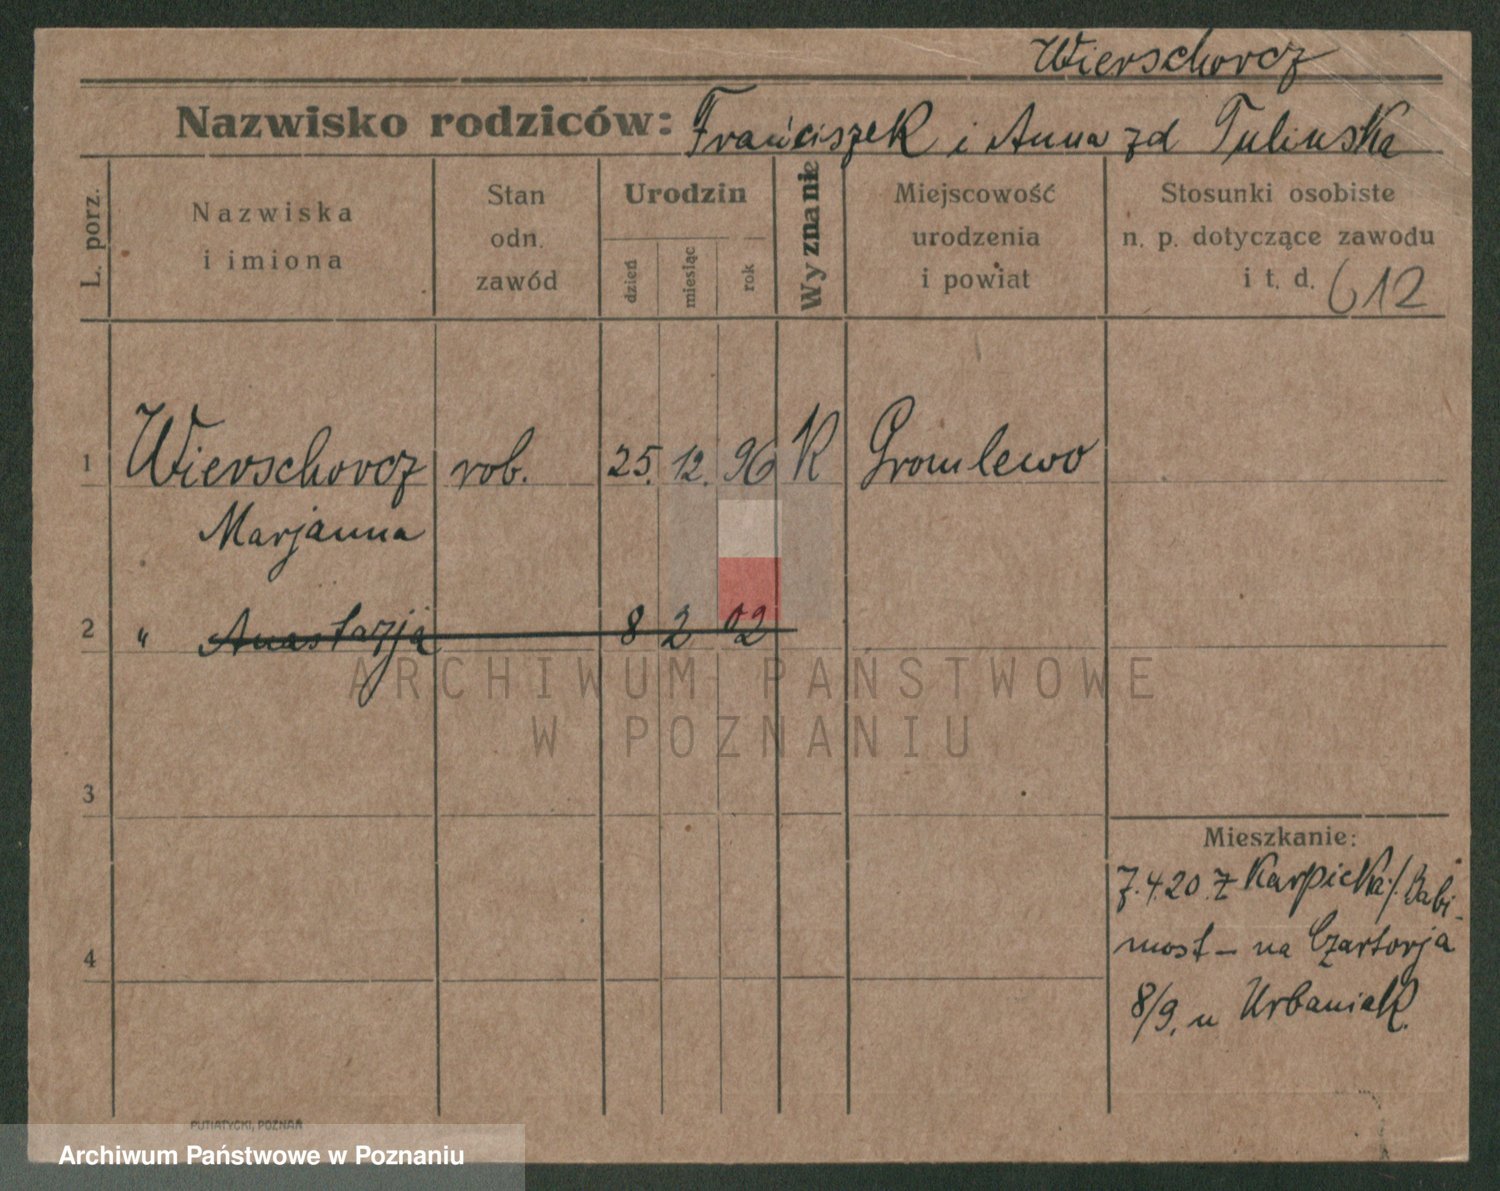 Wierschorcz
Nazwisko rodziców: Franciszek i Anna zd Tulinska
L. porz.
Nazwiska
i imiona
Stan
odn.
zawód
Urodzin
dzień
miesiąc
rok
Wyznanie
Miejscowość
urodzenia
i powiat
Stosunki osobiste
n. p. dotyczące zawodu
i t. d. 612
1 Wierschorcz rob. 25. 12. 96 K Gromlewo
Marjanna
2 " Anastazja 8 2 02
3
4
Mieszkanie:
7.4.20. z Karpicka/. Babi-
most – na Czartorja
8/9. u Urbaniak.
PUTIATYCKI, POZNAŃ
ARCHIWUM PAŃSTWOWE
W POZNANIU
Archiwum Państwowe w Poznaniu